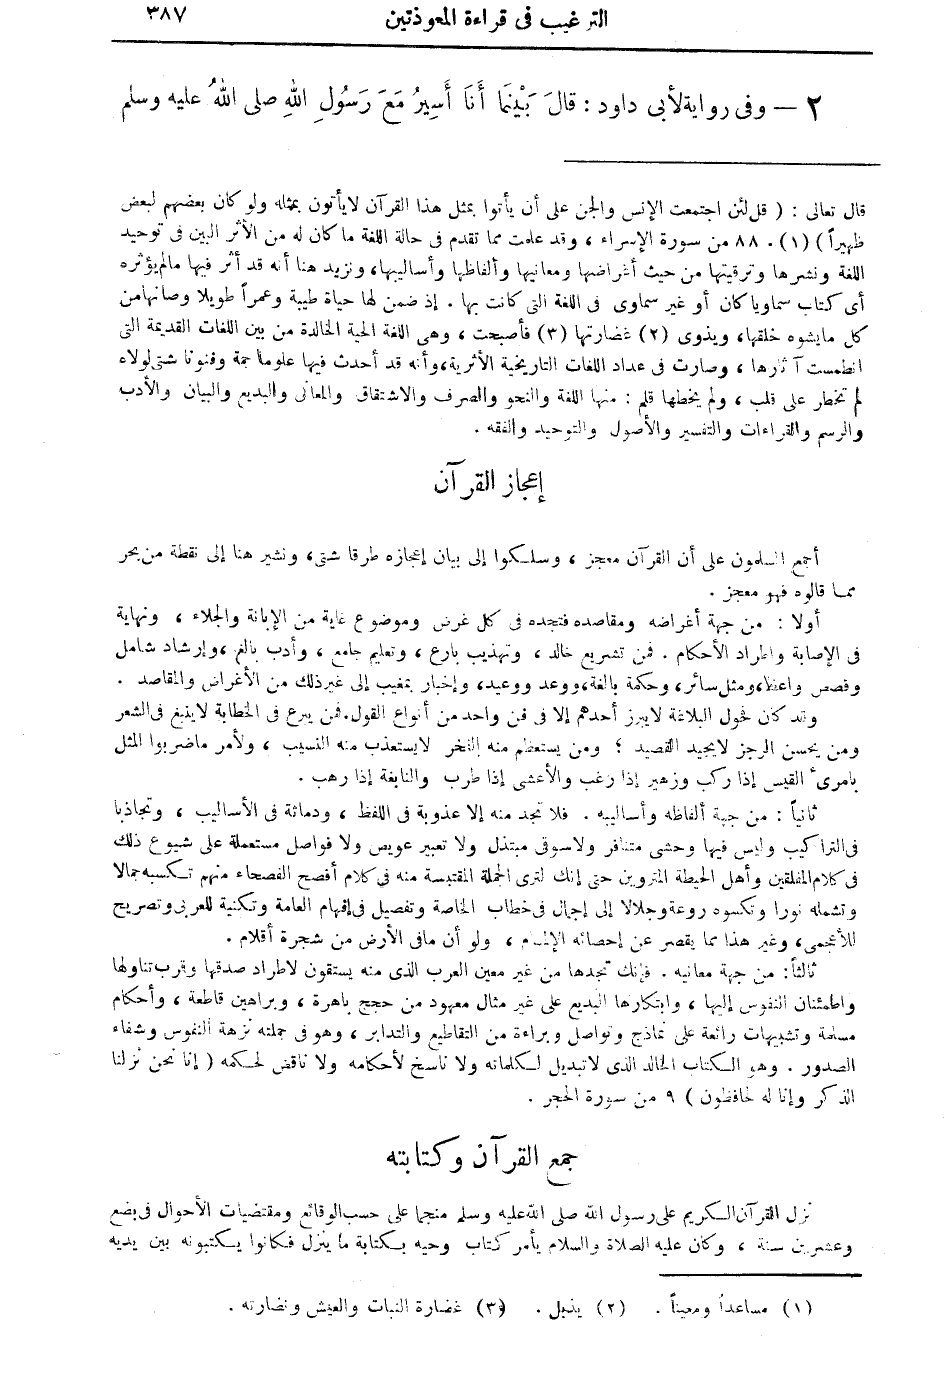 الترغيب فى قراءة المعوذتين
٣٨٧
٢ — وفى رواية لأبى داود : قَالَ بَيْنَمَا أَنَا أَسِيرُ مَعَ رَسُولِ اللهِ صلى اللهُ عليه وسلم
قال تعالى : ( قل لئن اجتمعت الإنس والجن على أن يأتوا بمثل هذا القرآن لا يأتون بمثله ولو كان بعضهم لبعض
ظهيراً ) (١) . ٨٨ من سورة الإسراء ، وقد علمت مما تقدم فى حالة اللغة ما كان له من الأثر البين فى توحيد
اللغة ونشرها وترقيتها من حيث أغراضها ومعانيها وألفاظها وأساليبها، ونزيد هنا أنه قد أثر فيها مالم يؤثره
أى كتاب سماويا كان أو غير سماوى فى اللغة التى كانت بها . إذ ضمن لها حياة طيبة وعمراً طويلا وصانها من
كل مايشوه خلقها، ويذوى (٢) غضارتها (٣) فأصبحت ، وهى اللغة الحية الخالدة من بين اللغات القديمة التى
انطمست آثارها ، وصارت فى عداد اللغات التاريخية الأثرية، وأنه قد أحدث فيها علوماً جمة وفنونا شتى لولاه
لم تخطر على قلب ، ولم يخطها قلم : منها اللغة والنحو والصرف والاشتقاق والمعانى والبديع والبيان والأدب
والرسم والقراءات والتفسير والأصول والتوحيد والفقه .
إعجاز القرآن
أجمع المسلمون على أن القرآن معجز ، وسلكوا إلى بيان إعجازه طرقا شتى، ونشير هنا إلى نقطة من بحر
مما قالوه فهو معجز .
أولا : من جهة أغراضه ومقاصده فتجده فى كل غرض وموضوع غاية من الإبانة والجلاء ، ونهاية
فى الإصابة واطراد الأحكام . فمن تشريع خالد ، وتهذيب بارع ، وتعليم جامع ، وأدب بالغ، وإرشاد شامل
وقصص واعظ، ومثل سائر، وحكمة بالغة، ووعد ووعيد، وإخبار بمغيب إلى غير ذلك من الأغراض والمقاصد .
وقد كان فحول البلاغة لا يبرز أحدهم إلا فى فن واحد من أنواع القول. فمن يبرع فى الخطابة لا ينبغ فى الشعر
ومن يحسن الرجز لايجيد القصيد ؛ ومن يستعظم منه الفخر لايستعذب منه النسيب ، ولأمر ماضربوا المثل
بامرئ القيس إذا ركب وزهير إذا رغب والأعشى إذا طرب والنابغة إذا رهب .
ثانياً : من جهة ألفاظه وأساليبه . فلا تجد منه إلا عذوبة فى اللفظ ، ودماثة فى الأساليب ، وتجاذبا
فى التراكيب وليس فيها وحشى متنافر ولاسوقى مبتذل ولا تعبير عويص ولا فواصل مستعملة على شيوع ذلك
فى كلام المفلقين وأهل الحيطة المتروين حتى إنك لترى الجملة المقتبسة منه فى كلام أفصح الفصحاء منهم تكسبه جمالا
وتشمله نورا وتكسوه روعة وجلالا إلى إجمال فى خطاب الخاصة وتفصيل فى إفهام العامة وتكنية للعربى وتصريح
للأعجمى، وغير هذا مما يقصر عن إحصائه الإلمام ، ولو أن مافى الأرض من شجرة أقلام .
ثالثاً: من جهة معانيه . فإنك تجدها من غير معين العرب الذى منه يستقون لاطراد صدقها وقرب تناولها
واطمئنان النفوس إليها ، وابتكارها البديع على غير مثال معهود من حجج باهرة ، وبراهين قاطعة ، وأحكام
مسلمة وتشبيهات رائعة على تماذج وتواصل وبراءة من التقاطع والتدابر ، وهو فى جملته نزهة النفوس وشفاء
الصدور . وهو الكتاب الخالد الذى لا تبديل لكلماته ولا ناسخ لأحكامه ولا ناقض لحكمه ( إنا نحن نزلنا
الذكر وإنا له لحافظون ) ٩ من سورة الحجر .
جمع القرآن وكتابته
نزل القرآن الكريم على رسول الله صلى الله عليه وسلم منجما على حسب الوقائع ومقتضيات الأحوال فى بضع
وعشرين سنة ، وكان عليه الصلاة والسلام يأمر كتاب وحيه بكتابة ما ينزل فكانوا يكتبونه بين يديه
(١) مساعداً ومعيناً . (٢) يذبل . (٣) غضارة النبات والعيش ونضارته .